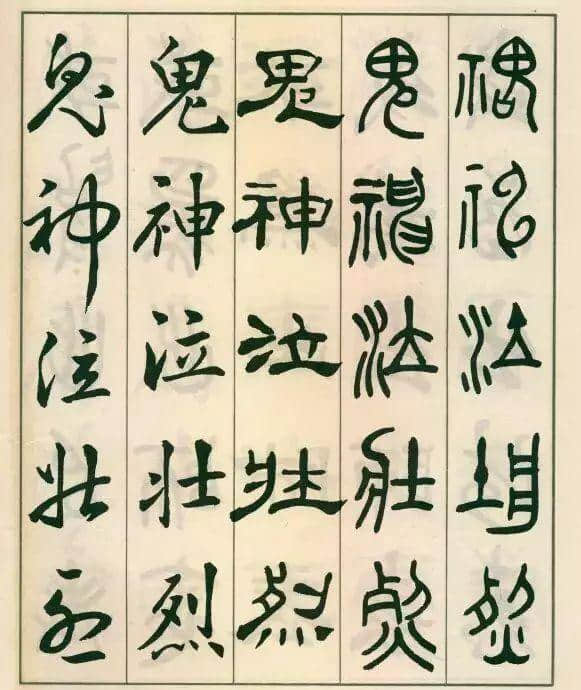 鬼神泣壮烈
鬼神泣壮烈
鬼神泣壮烈
鬼神泣壮烈
鬼神泣壮烈